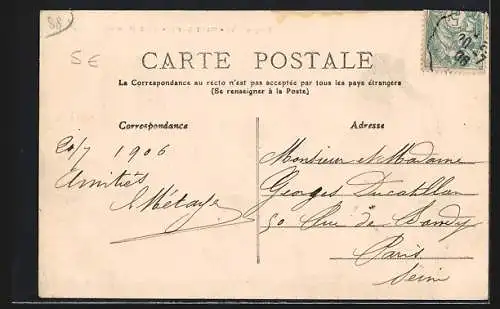 88
5E
CARTE POSTALE
La Correspondance au recto n'est pas acceptée par tous les pays étrangers
(Se renseigner à la Poste)
Correspondance
Adresse
20/7 1906
Amitiés
Monsieur et Madame
Georges
50 Rue de
Paris
Seine